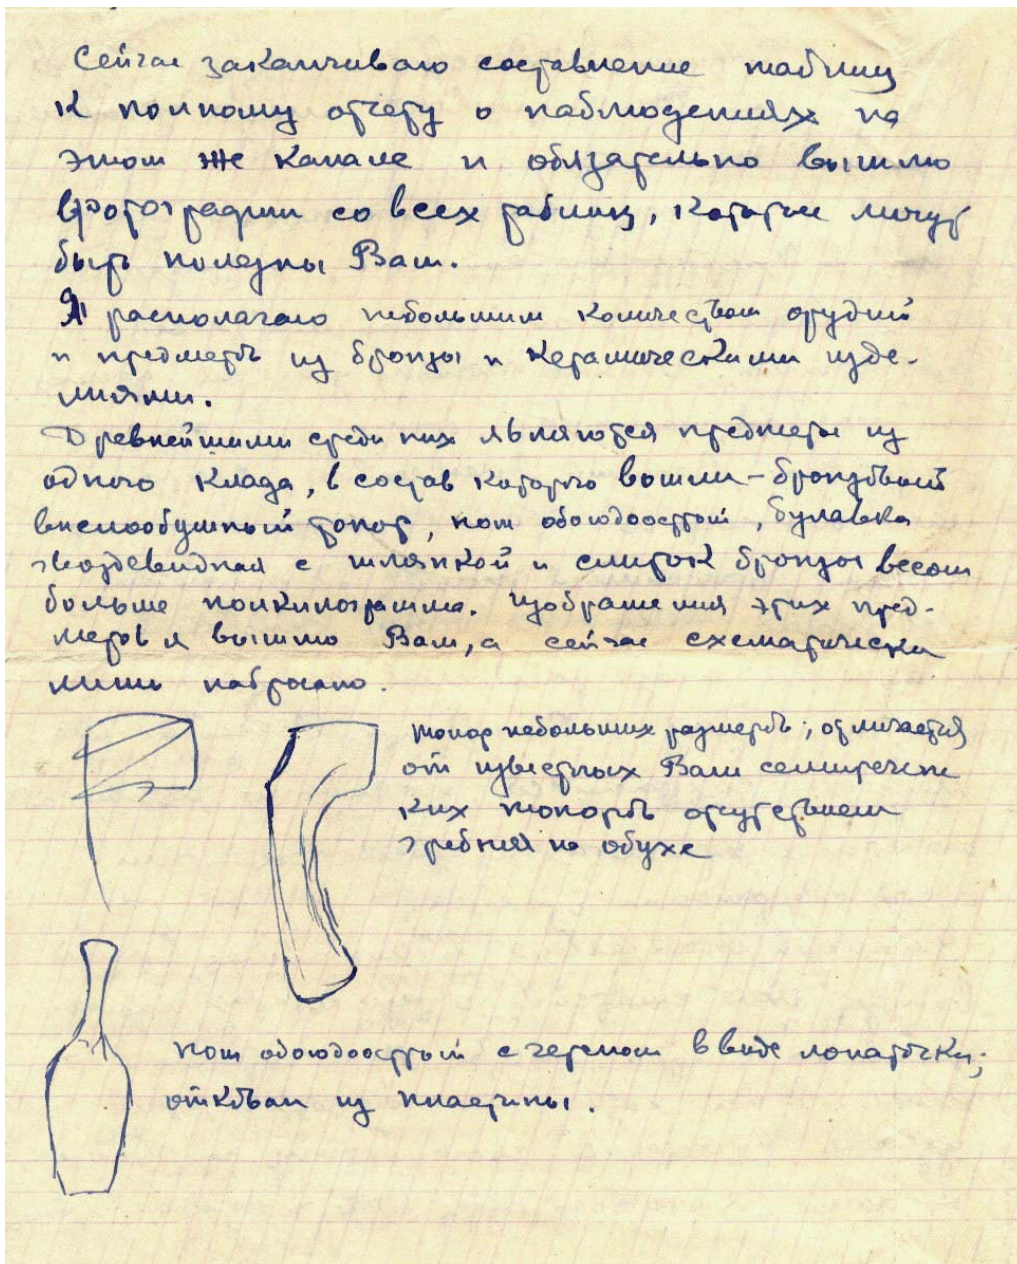 Сейчас заканчиваю составление таблиц
к полному отчету о наблюдениях на
этом же канале и обязательно вышлю
фотографии со всех таблиц, которые могут
быть полезны Вам.
Я располагаю небольшим количеством орудий
и предметов из бронзы и керамическими изде-
лиями.
Древнейшими среди них являются предметы из
одного клада, в состав которого вошли - бронзовый
вислообушный топор, нож обоюдоострый, булавка
гвоздевидная с шляпкой и слиток бронзы весом
больше полкилограмма. Изображения этих пред-
метов я вышлю Вам, а сейчас схематически
лишь набросаю.
топор небольших размеров; отличается
от известных Вам семиреченс
ких топоров отсутствием
гребня на обухе
нож обоюдоострый с череном в виде лопаточки;
откован из пластины.